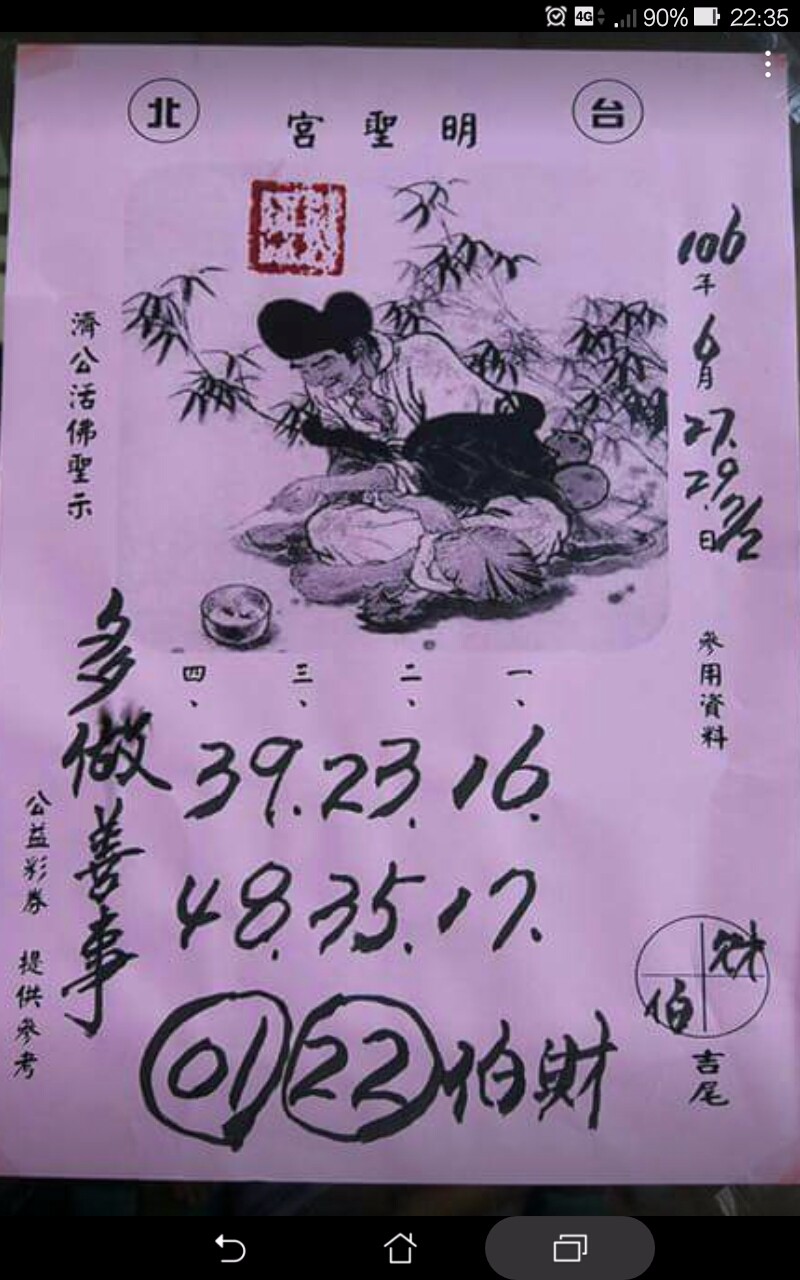 4G 90% 22:35
台 北
明聖宮
106年6月27.29.7/2日
參用資料
濟公活佛聖示
一、 二、 三、 四、
39.23.16.
48.35.17.
01 22 伯財
多做善事
公益彩券 提供參考
財
伯
吉尾